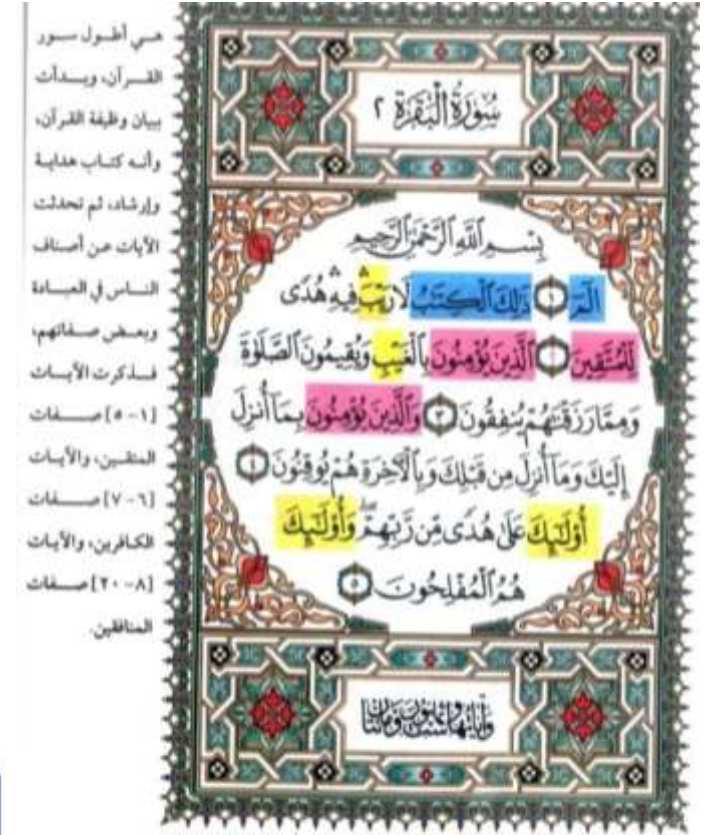 هي أطول سور
القرآن، وبدأت
ببيان وظيفة القرآن،
وأنه كتاب هداية
وإرشاد، ثم تحدثت
الآيات عن أصناف
الناس في العبادة
وبعض صفاتهم،
فذكرت الآيات
[١-٥] صفات
المتقين، والآيات
[٦-٧] صفات
الكافرين، والآيات
[٨-٢٠] صفات
المنافقين.
سُورَةُ الْبَقَرَةِ ٢
بِسْمِ ٱللَّهِ ٱلرَّحْمَٰنِ ٱلرَّحِيمِ
الٓمٓ ١ ذَٰلِكَ ٱلْكِتَٰبُ لَا رَيْبَ ۛ فِيهِ ۛ هُدًى
لِّلْمُتَّقِينَ ٢ ٱلَّذِينَ يُؤْمِنُونَ بِٱلْغَيْبِ وَيُقِيمُونَ ٱلصَّلَوٰةَ
وَمِمَّا رَزَقْنَٰهُمْ يُنفِقُونَ ٣ وَٱلَّذِينَ يُؤْمِنُونَ بِمَآ أُنزِلَ
إِلَيْكَ وَمَآ أُنزِلَ مِن قَبْلِكَ وَبِٱلْءَاخِرَةِ هُمْ يُوقِنُونَ ٤
أُو۟لَٰٓئِكَ عَلَىٰ هُدًى مِّن رَّبِّهِمْ ۖ وَأُو۟لَٰٓئِكَ
هُمُ ٱلْمُفْلِحُونَ ٥
وَآيَاتُهَا سِتٌّ وَثَمَانُونَ وَمِائَتَانِ